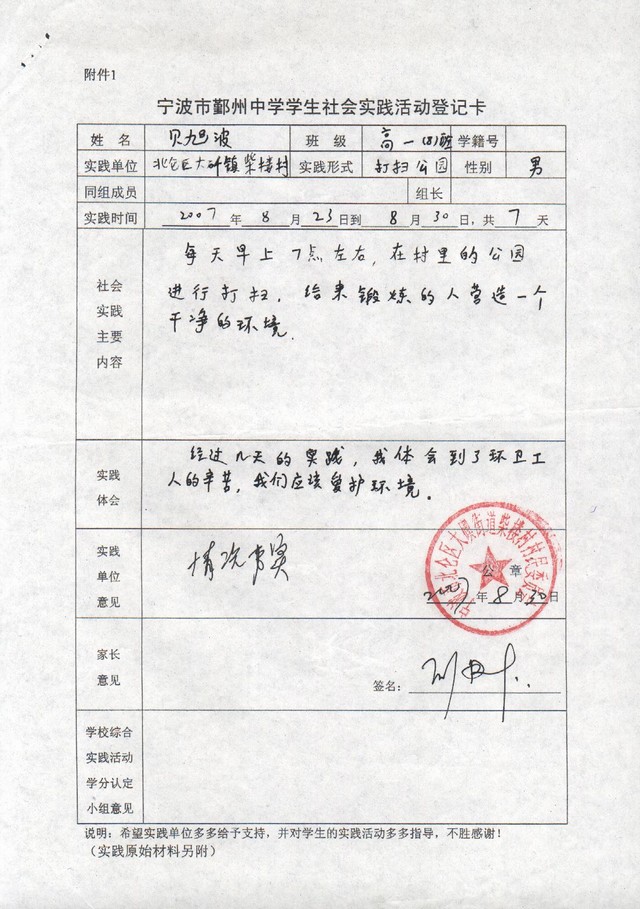 附件1
宁波市鄞州中学学生社会实践活动登记卡
姓 名 贝旭波 班 级 高一(8)班 学籍号
实践单位 北仑区大矸镇柴楼村 实践形式 打扫公园 性别 男
同组成员 组长
实践时间 2007 年 8 月 23 日到 8 月 30 日,共 7 天
社会实践主要内容
每天早上7点左右,在村里的公园
进行打扫,给来锻炼的人营造一个
干净的环境.
实践体会
经过几天的实践,我体会到了环卫工
人的辛苦,我们应该爱护环境。
实践单位意见
情况属实
北仑区大矸街道柴楼村村民委员会
公 章
2007 年 8 月 30 日
家长意见
签名:
学校综合
实践活动
学分认定
小组意见
说明:希望实践单位多多给予支持,并对学生的实践活动多多指导,不胜感谢!
(实践原始材料另附)